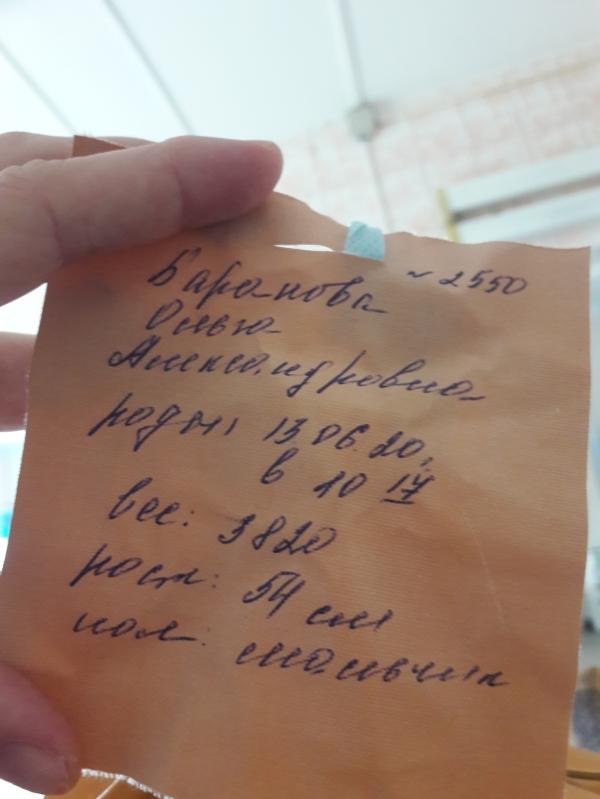 Баранова ~ 2550
Ольга
Александровна
роды: 13.06.20,
в 10 17
вес: 3820
рост: 54 см
пол: мальчик